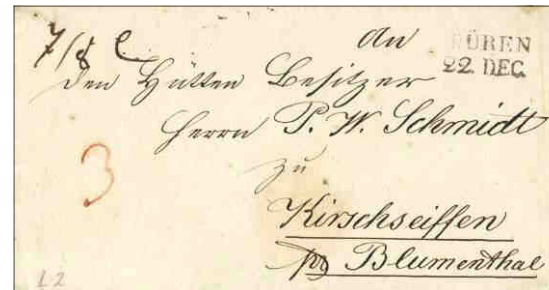 7/8
An
DÜREN
22. DEC.
Den Hütten Besitzer
Herrn P. W. Schmidt
zu
3
Kirschseiffen
Blumenthal
L2